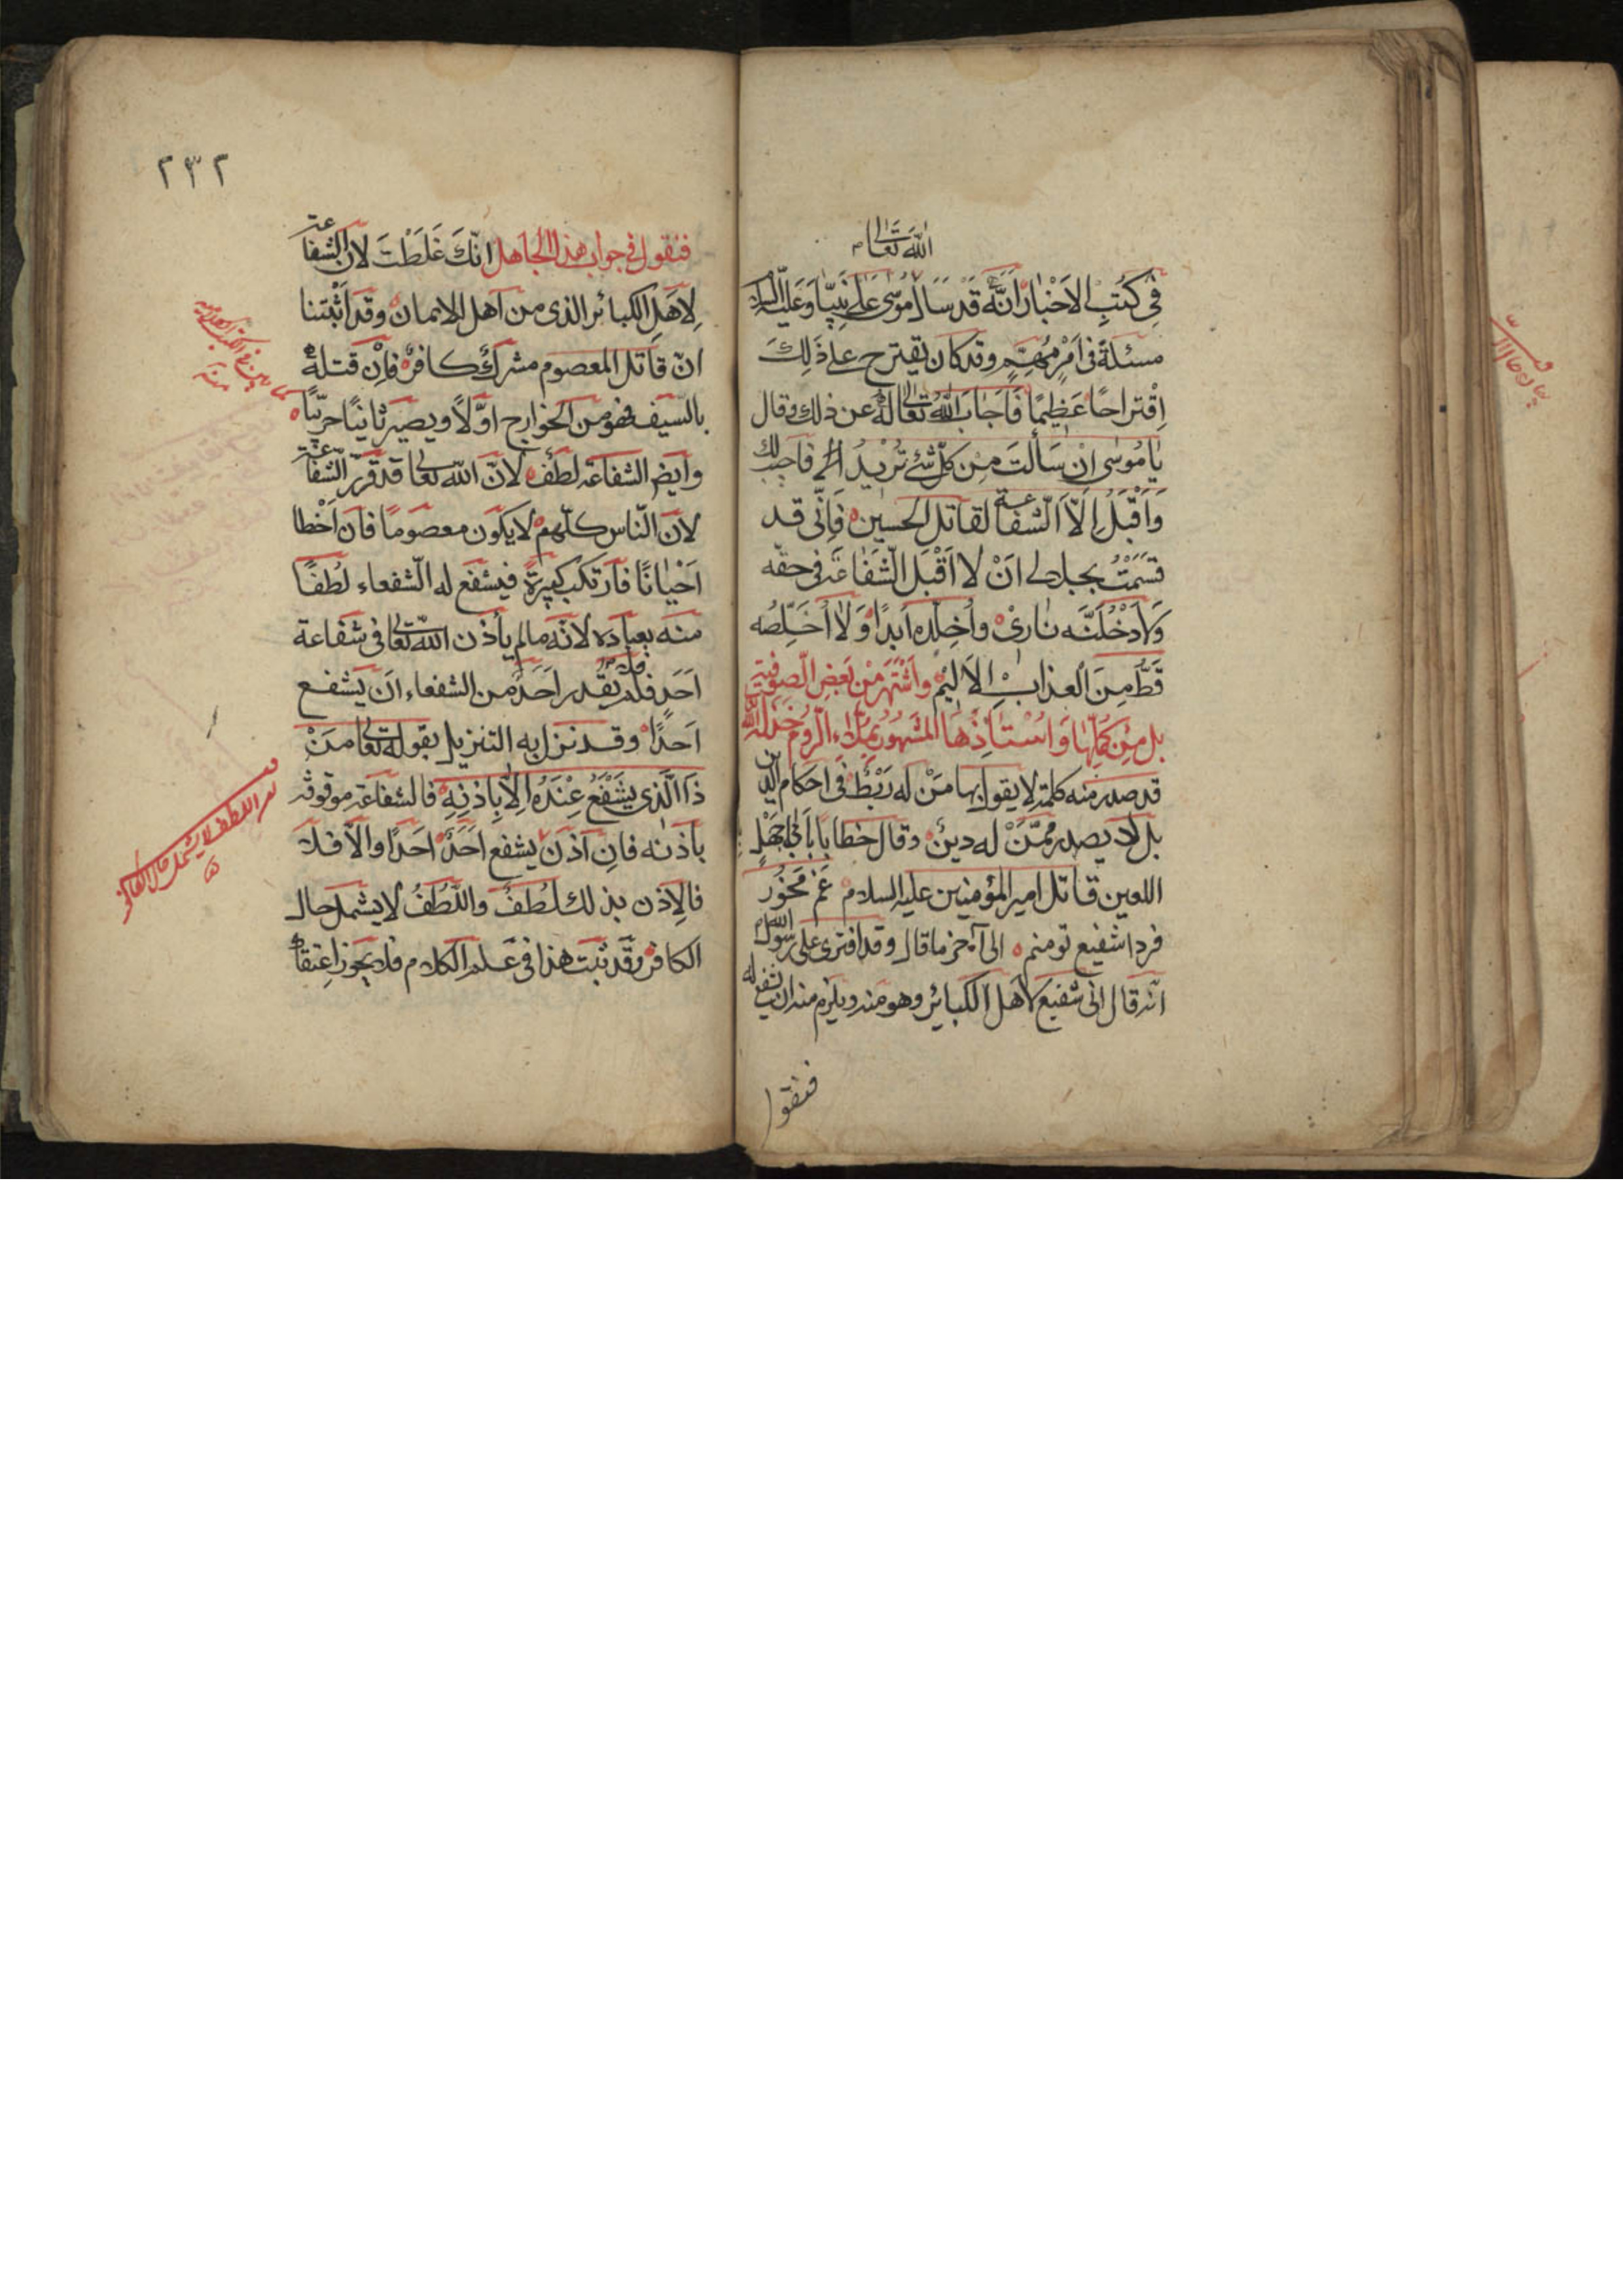 الله تعالى
في كُتُبِ الاَخْبارِ اَنَّه قَد سَاَلَ مُوسى عَلى نَبِيِّنا وَعَلَيْهِ السلام
مسئلةً في اَمْرٍ مُهِمٍّ وقد كان يقترح على ذٰلِكَ
اِقْتراحًا عَظيمًا فَاَجابَ اللّٰهُ تعالى لَهُ عن ذلك وقال
يا مُوسى اِنْ سَاَلْتَ مِنْ كلّ شئ تُرْيدُ اَلَّى فاجيب لك
وَاَقْبَلُ اِلَّا الشفاعة لقاتل الحسين فَاِنّى قد
قسَمْتُ بجلالى اَنْ لا اَقْبَلَ الشَّفاعَةَ فى حقّه
وَلَاَدْخُلَنَّه نارىْ واُخلّده اَبدًا وَلا اُخَلِّصُه
قَطُّ مِنَ العذابِ الاَليمْ واشْتهَرَ مِنْ بَعْضِ الصوفيّة
بل مِنْ كُمَّلِها وَاُسْتاذِها المَشهُورِ بمُلّاء الرّوم خذله الله
قد صدر منه كلمة لا يقول بها مَنْ له رَبْطٌ فى احكام الدين
بل لا يصدر ممّنْ له دينٌ وقال خطابًا بِاَبى جَهْلٍ
اللعين قاتل امير المؤمنين عليه السلام غم مَخُور
فردا شفيع تو منم الى آخر ما قال وقد افترى على رسول الله
انّه قال انى شفيع لاهل الكبائر وهو منه ويلزم منه ان يشفع له
فنقول
٢٣٢
فنقول فى جواب هذا الجاهل انّكَ غَلَطْتَ لانّ الشفاعة
لِاَهلِ الكبائر الذى من اهل الايمان وقد اَثْبَتنا
انّ قاتل المعصوم مشركٌ كافرٌ فاِن قتله
بالسّيف فهو من الخوارج اوّلاً ويصير ثانيًا حربيًّا
وايضا الشفاعة لطف لانّ الله تعالى قد قرّر الشفاعة
لانّ النّاس كلّهم لا يكون معصومًا فان اَخْطا
اَحْيانًا فارتكب كبيرةً فيشفع له الشّفعاء لُطفًا
منه بعباده لانّه مالم يأذن الله تعالى فى شفاعة
اَحَدٍ فلم يقدر اَحَدٌ من الشفعاء ان يشفع
اَحَدًا وقد نزل به التنزيل بقوله تعالى مَنْ
ذَا الَّذى يَشْفَعُ عِنْدَهُ اِلّا بِاِذنِهِ فالشفاعة موقوفة
باذنه فانِ اذن يشفع اَحَدٌ احَدًا والّا فلا
فالاِذن بذلك لُطفٌ واللّطُفُ لا يشمل حال
الكافر وقد ثبت هذا فى علم الكلام فلا يجوز اعتقاد
اللطف لا يشمل حال الكافر